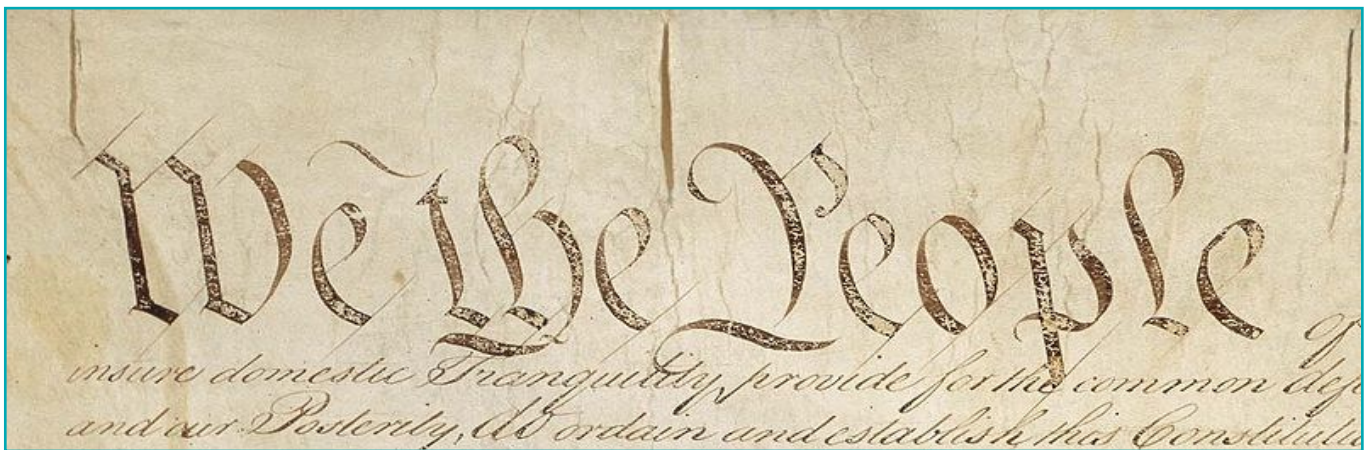 We the People
insure domestic Tranquility, provide for the common def
and our Posterity, do ordain and establish this Constitutio